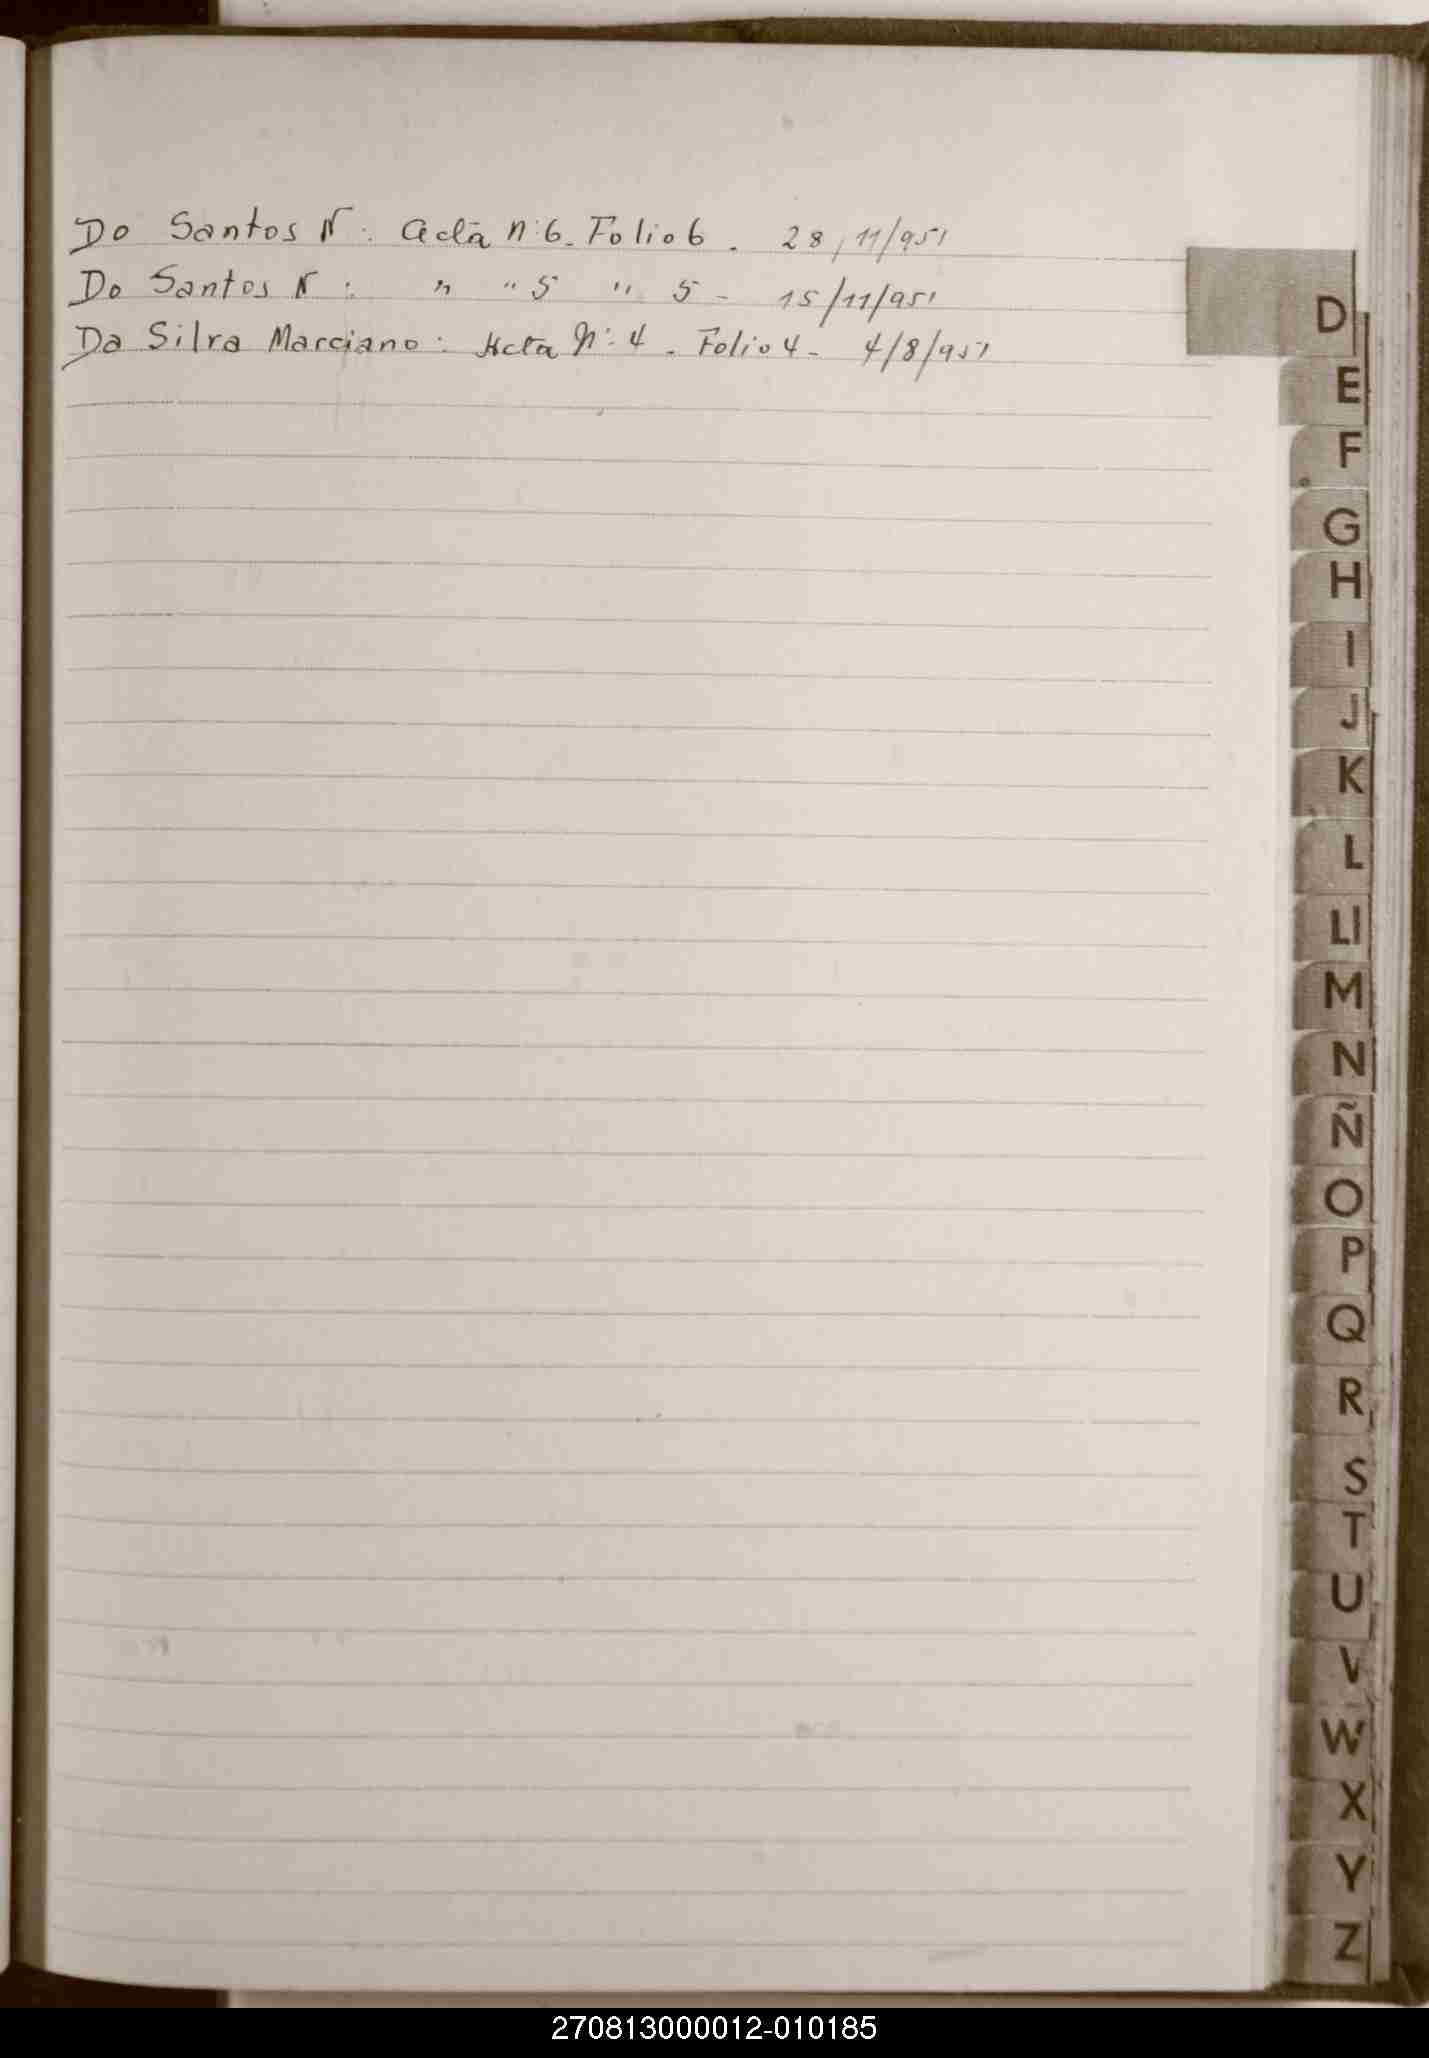 Do Santos N: Acta n:6. Folio 6. 28/11/951
Do Santos N: " " 5 " 5 - 15/11/951
Da Silva Marciano: Acta N: 4. Folio 4 - 4/8/951
D
E
F
G
H
I
J
K
L
Ll
M
N
Ñ
O
P
Q
R
S
T
U
V
W
X
Y
Z
270813000012-010185